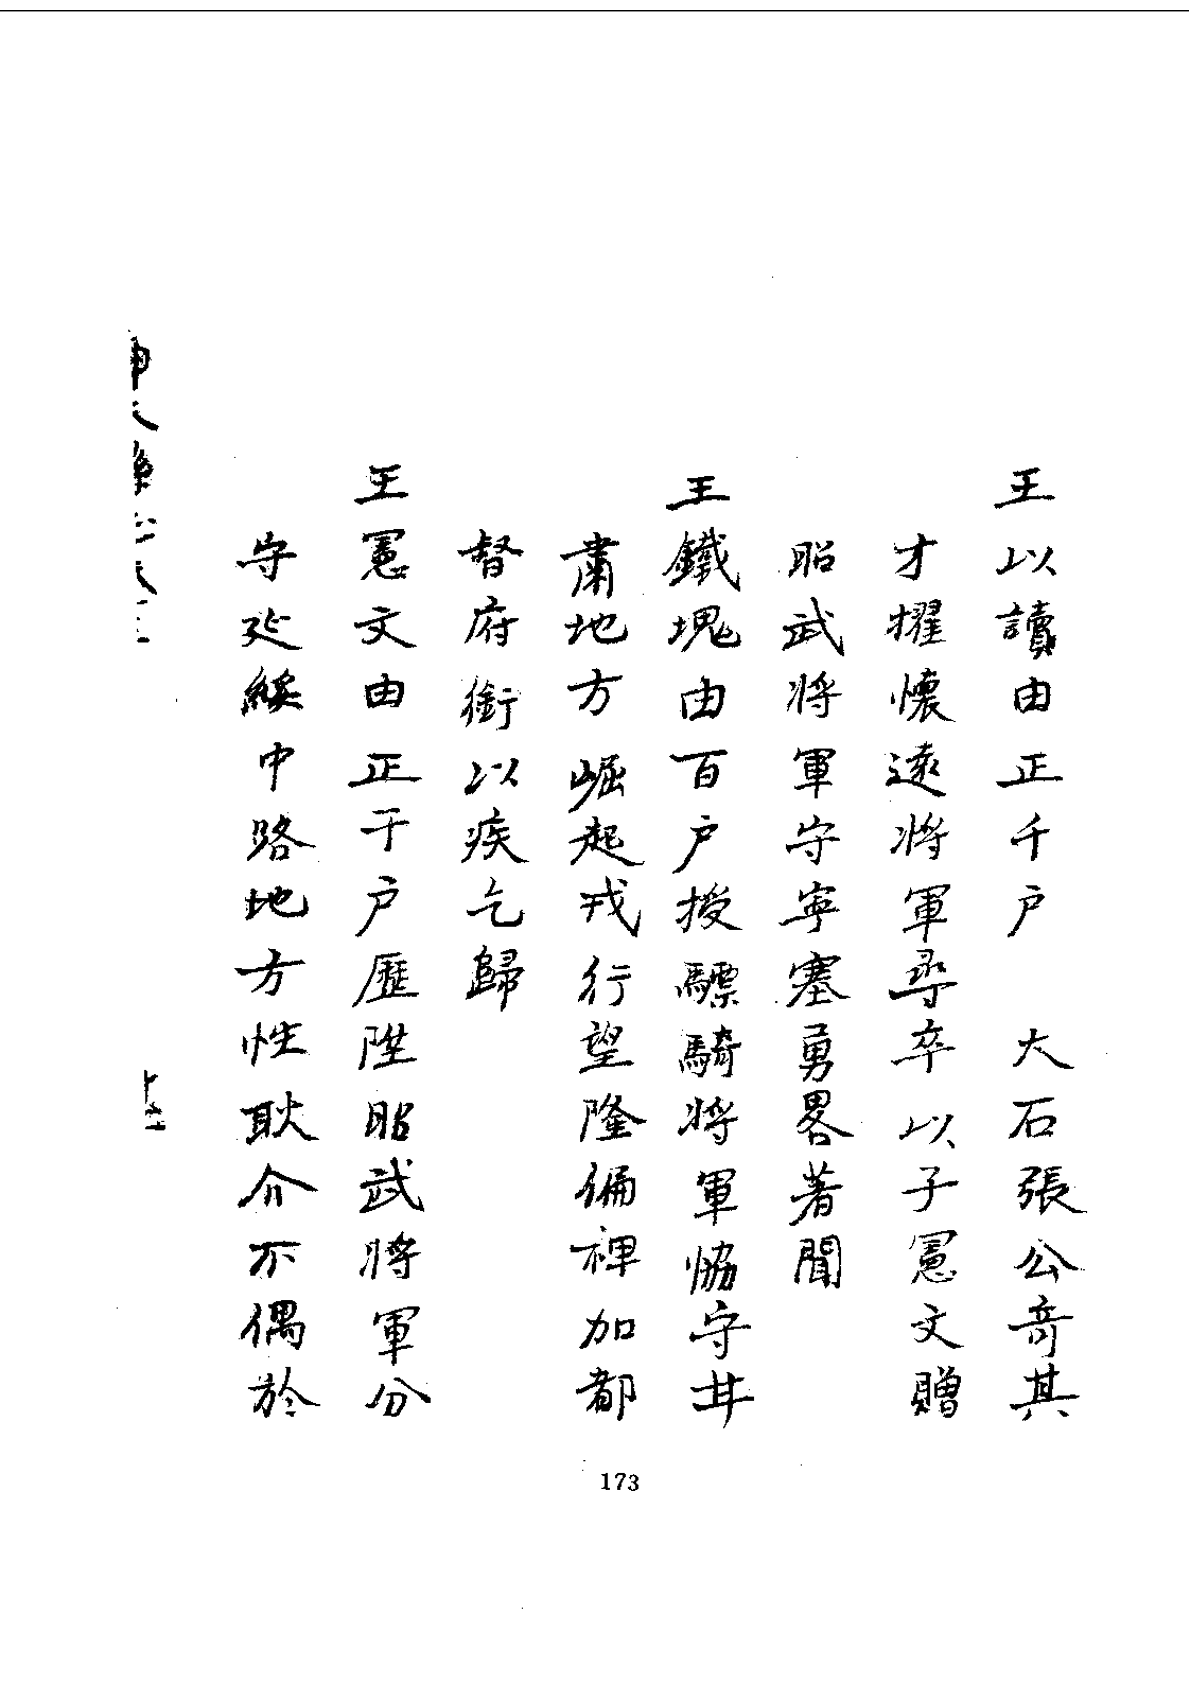 王以讀由正千戶　大石張公奇其
才擢懷遠將軍尋卒以子憲文贈
昭武将軍守寧塞勇畧著聞
王鐵塊由百户授驃騎將軍恊守甘
肅地方崛起戎行望隆偏裨加都
督府銜以疾乞歸
王憲文由正千户歷陞昭武將軍分
守延綏中路地方性耿介不偶於
173